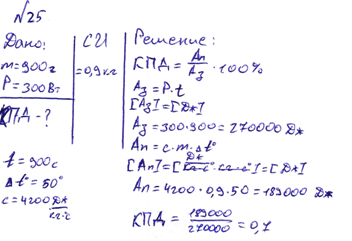 №25
Дано:
m=900г
P=300Вт
КПД-?
t=900с
Δt°=50°
c=4200 Дж/кг·с
СИ
=0,9кг
Решение:
КПД = Aп/Aз · 100%
Aз = P·t
[Aз] = [Дж]
Aз = 300·900 = 270000 Дж
Aп = c·m·Δt°
[Aп] = [Дж/кг·с° ·кг·с°] = [Дж]
Aп = 4200·0,9·50 = 189000 Дж
КПД = 189000/270000 = 0,7